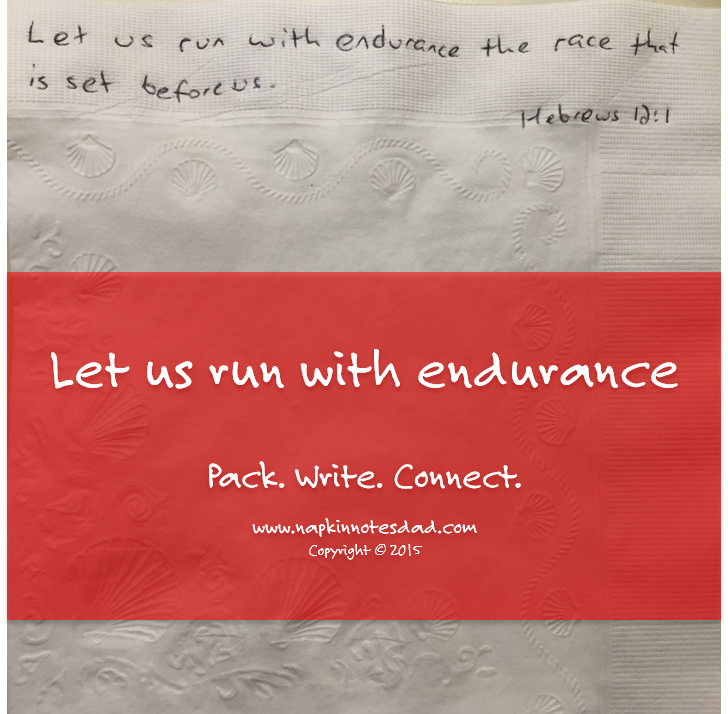 Let us run with endurance the race that
is set before us.
Hebrews 12:1
Let us run with endurance
Pack. Write. Connect.
www.napkinnotesdad.com
Copyright © 2015